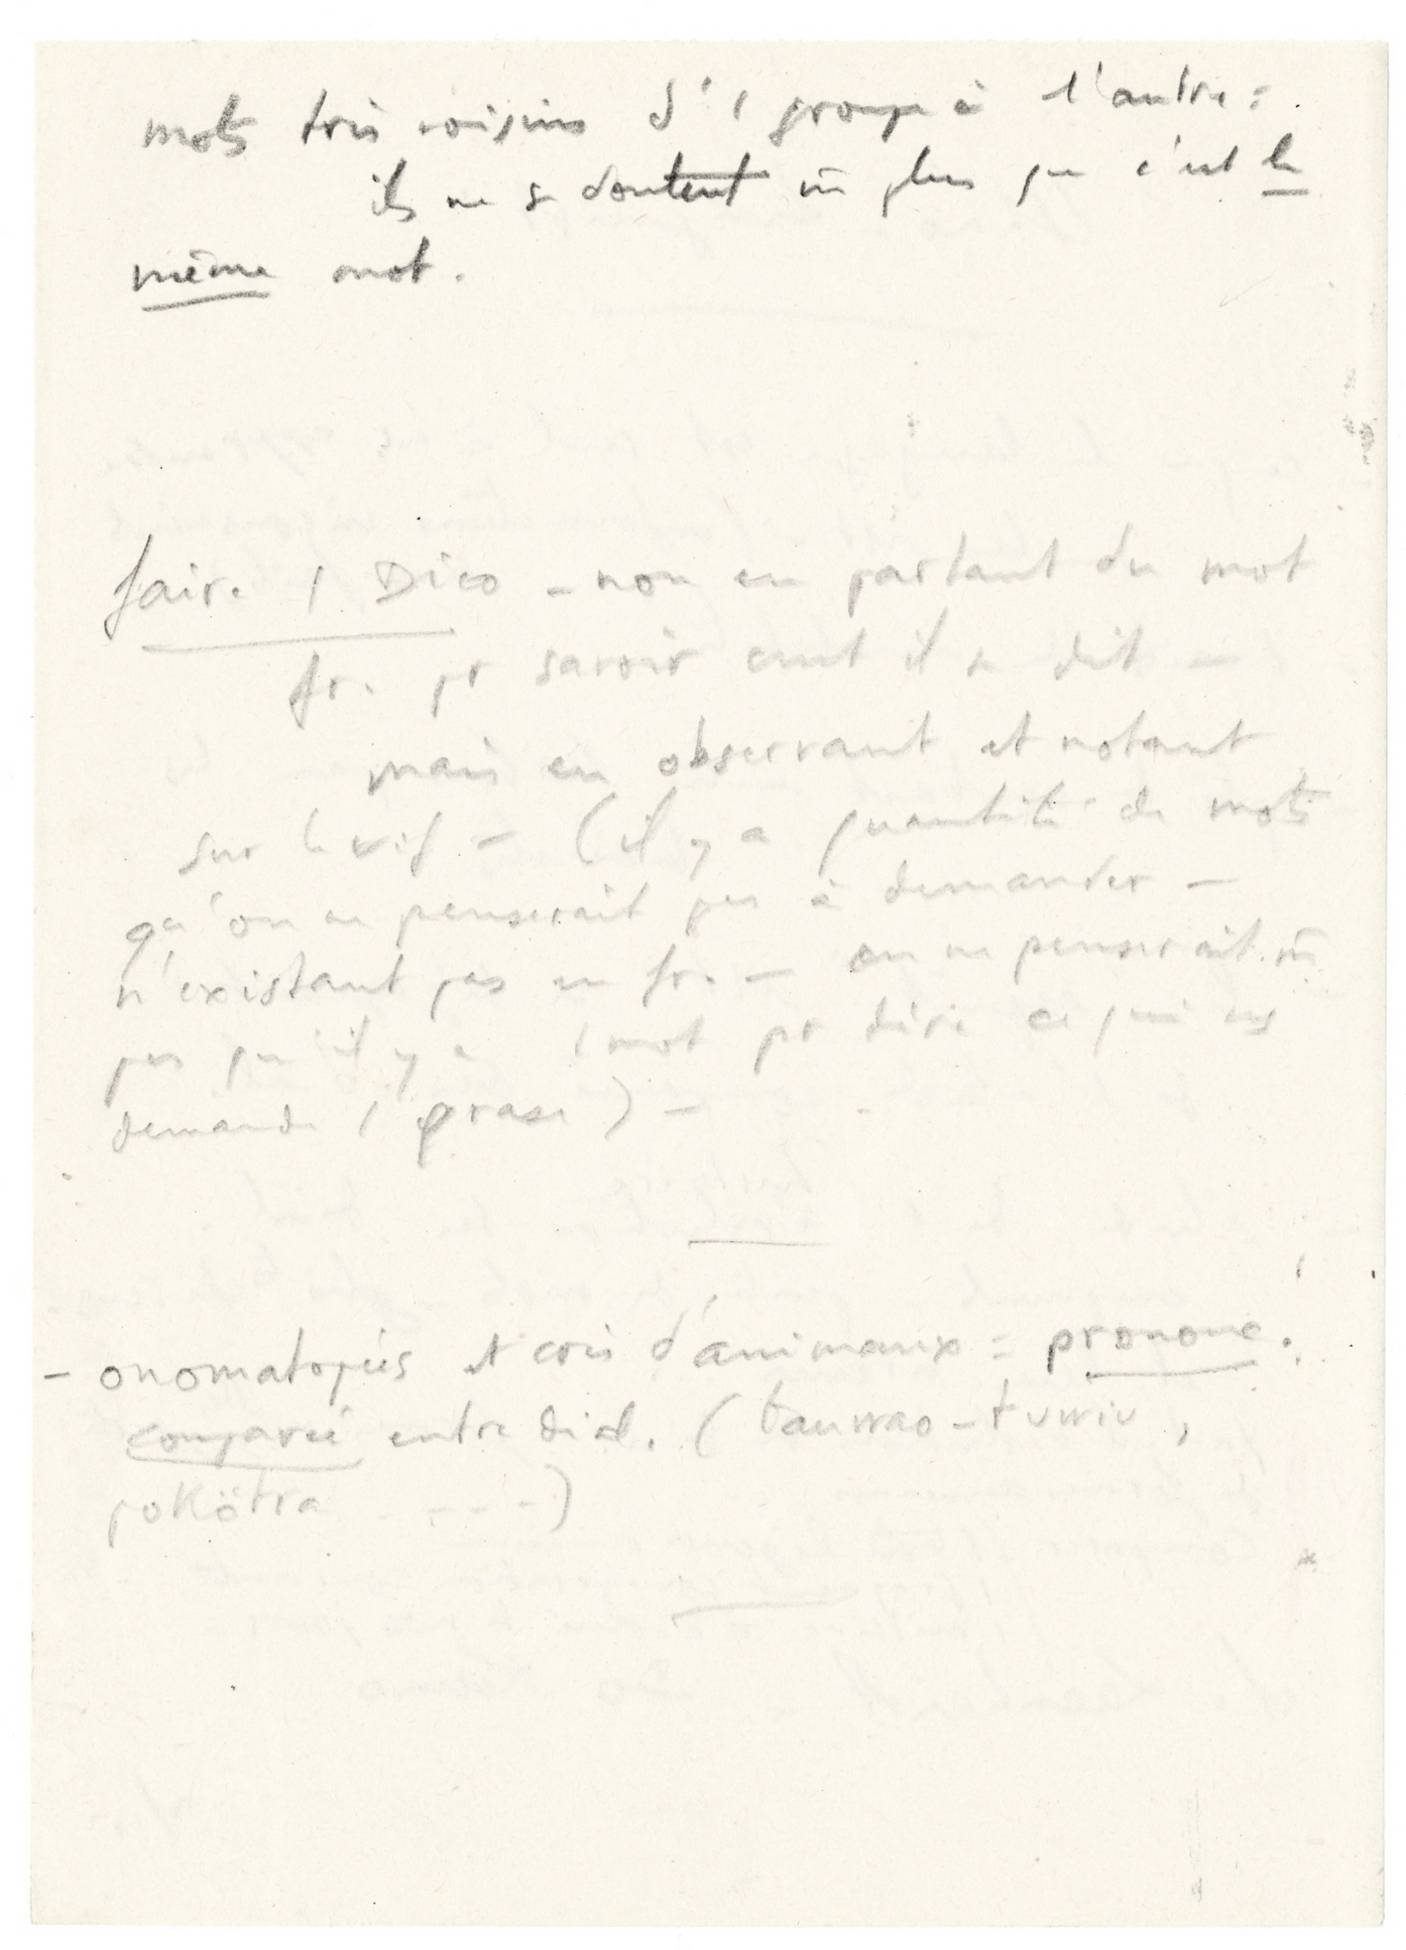 mots très voisins d'1 groupe à l'autre :
ils ne se doutent m̄ plus que c'est le
même mot.
faire 1 Dico - non en partant du mot
fr. pr savoir cmt il se dit -
mais en observant et notant
sur le vif - (il y a quantité de mots
qu'on ne penserait pas à demander -
n'existant pas en fr. - on ne penserait m̄
pas qu'il y a 1 mot pr dire ce qui ns
demande 1 φrase) -
- onomatopées et cris d'animaux = prononc.
comparée entre dial. (
pokötra - - - -)